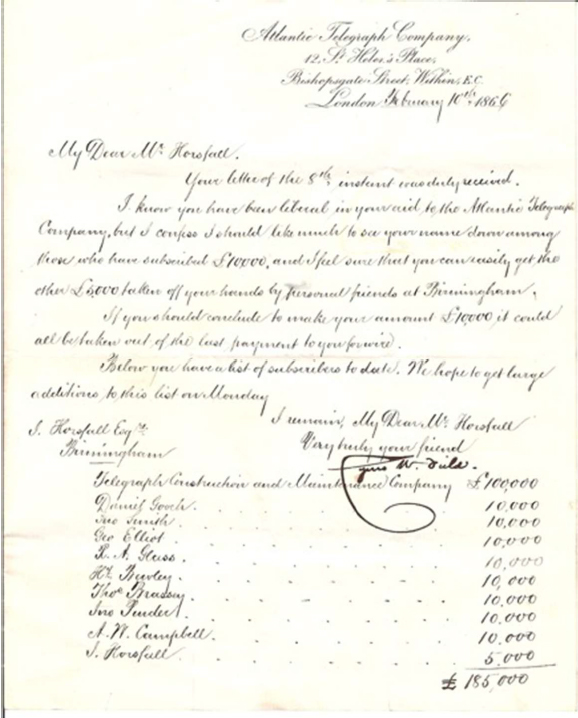 Atlantic Telegraph Company,
12, St. Helen's Place,
Bishopsgate Street, Within, E.C.
London February 10th, 1866
My Dear Mr. Horsfall.
Your letter of the 8th instant was duly received.
I know you have been liberal in your aid to the Atlantic Telegraph
Company, but I confess I should like much to see your name down among
those who have subscribed £10000, and I feel sure that you can easily get the
other £5,000 taken off your hands by personal friends at Birmingham,
If you should conclude to make your amount £10000 it could
all be taken out of the last payment to you for wire.
Below you have a list of subscribers to date. We hope to get large
additions to this list on Monday
I remain, My Dear Mr. Horsfall
J. Horsfall Esqre.
Very truly your friend
Birmingham
Cyrus W. Field.
Telegraph Construction and Maintenance Company £100,000
Daniel Gooch . 10,000
Jno Smith . 10,000
Geo Elliot . 10,000
R. A. Glass . 10,000
Hy. Bewley . 10,000
Thos Brassey . 10,000
Jno Pender . 10,000
A. W. Campbell . 10,000
J. Horsfall . 5,000
£ 185,000